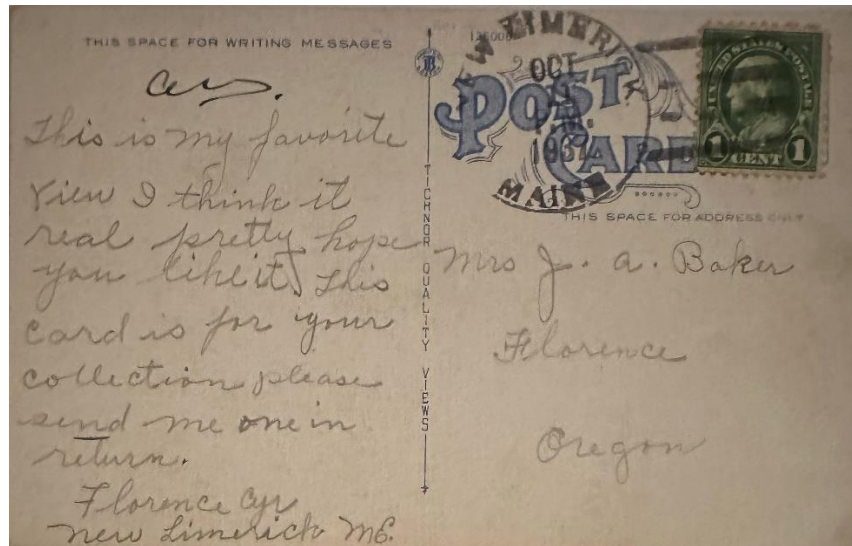 THIS SPACE FOR WRITING MESSAGES
ans.
This is my favorite
View I think it
real pretty hope
you like it. This
card is for your
collection please
send me one in
return.
Florence Cyr
New Limerick ME.
TICHNOR QUALITY VIEWS
NEW LIMERICK
OCT
P.M.
MAINE
POST
CARD
UNITED STATES POSTAGE
1 CENT 1
THIS SPACE FOR ADDRESS ONLY
Mrs J. A. Baker
Florence
Oregon